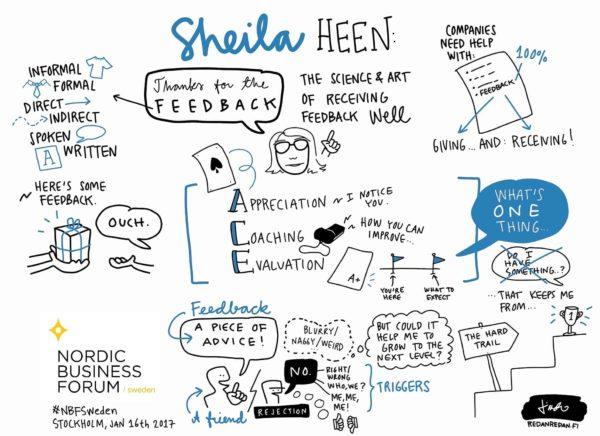 Sheila HEEN:
INFORMAL
FORMAL
DIRECT
INDIRECT
SPOKEN
A WRITTEN
Thanks for the
FEEDBACK
THE SCIENCE & ART
OF RECEIVING
FEEDBACK Well
COMPANIES
NEED HELP
WITH:
100%
FEEDBACK
GIVING... AND: RECEIVING!
HERE'S SOME
FEEDBACK.
OUCH.
APPRECIATION ~ I NOTICE
YOU.
COACHING
~ HOW YOU CAN
IMPROVE...
EVALUATION
A+
YOU'RE
HERE
WHAT TO
EXPECT
WHAT'S
ONE
THING...
DO I
HAVE
SOMETHING..?
...THAT KEEPS ME
FROM...
1
Feedback
A PIECE OF
ADVICE!
BLURRY/
NAGGY/WEIRD
BUT COULD IT
HELP ME TO
GROW TO THE
NEXT LEVEL?
THE HARD
TRAIL
A friend
NO.
REJECTION
RIGHT/
WRONG
WHO, WE?
ME, ME,
ME!
TRIGGERS
NORDIC
BUSINESS
FORUM / sweden
#NBFSweden
STOCKHOLM, JAN 16th 2017
REDANREDAN.FI